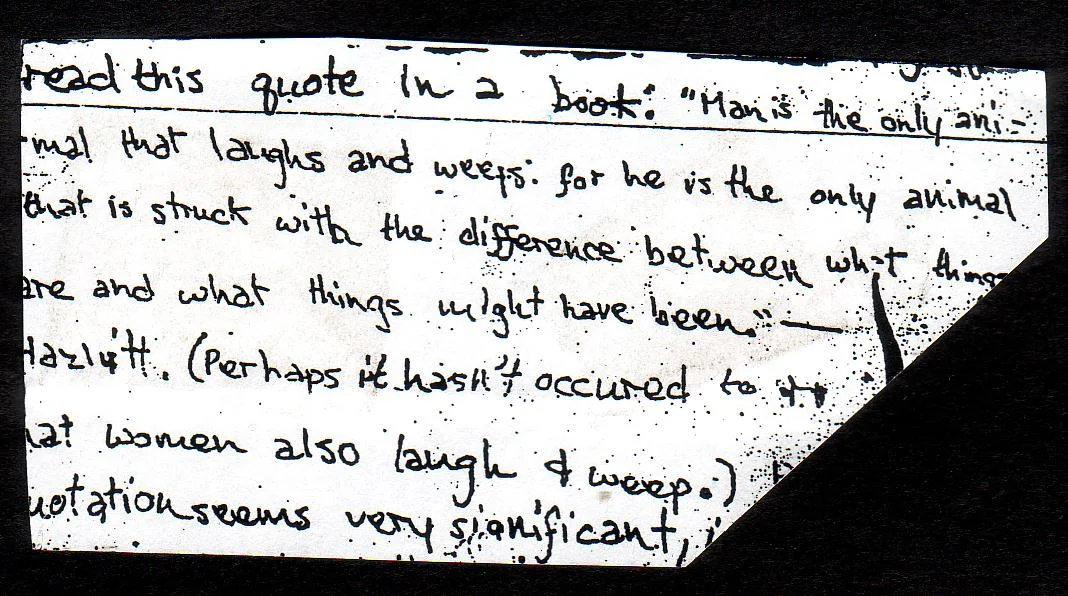 read this quote in a book: "Man is the only ani-
mal that laughs and weeps: for he is the only animal
that is struck with the difference between what things
are and what things might have been." —
Hazlitt. (Perhaps it hasn't occured to
hat women also laugh & weep.)
uotation seems very significant,